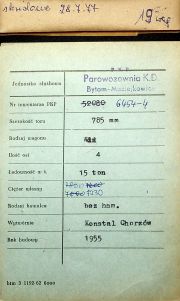 skreślono 28.7.77
P K P
Jednostka służbowa Parowozownia K.D.
Bytom-Maciejkowice
Nr inwentarza PKP 6454-4
Szerokość toru 785 mm
Rodzaj wagonu
Ilość osi 4
Ładowność w t. 15 ton
Ciężar własny 7430
Rodzaj hamulca bez ham.
Wytwórnia Konstal Chorzów
Rok budowy 1955